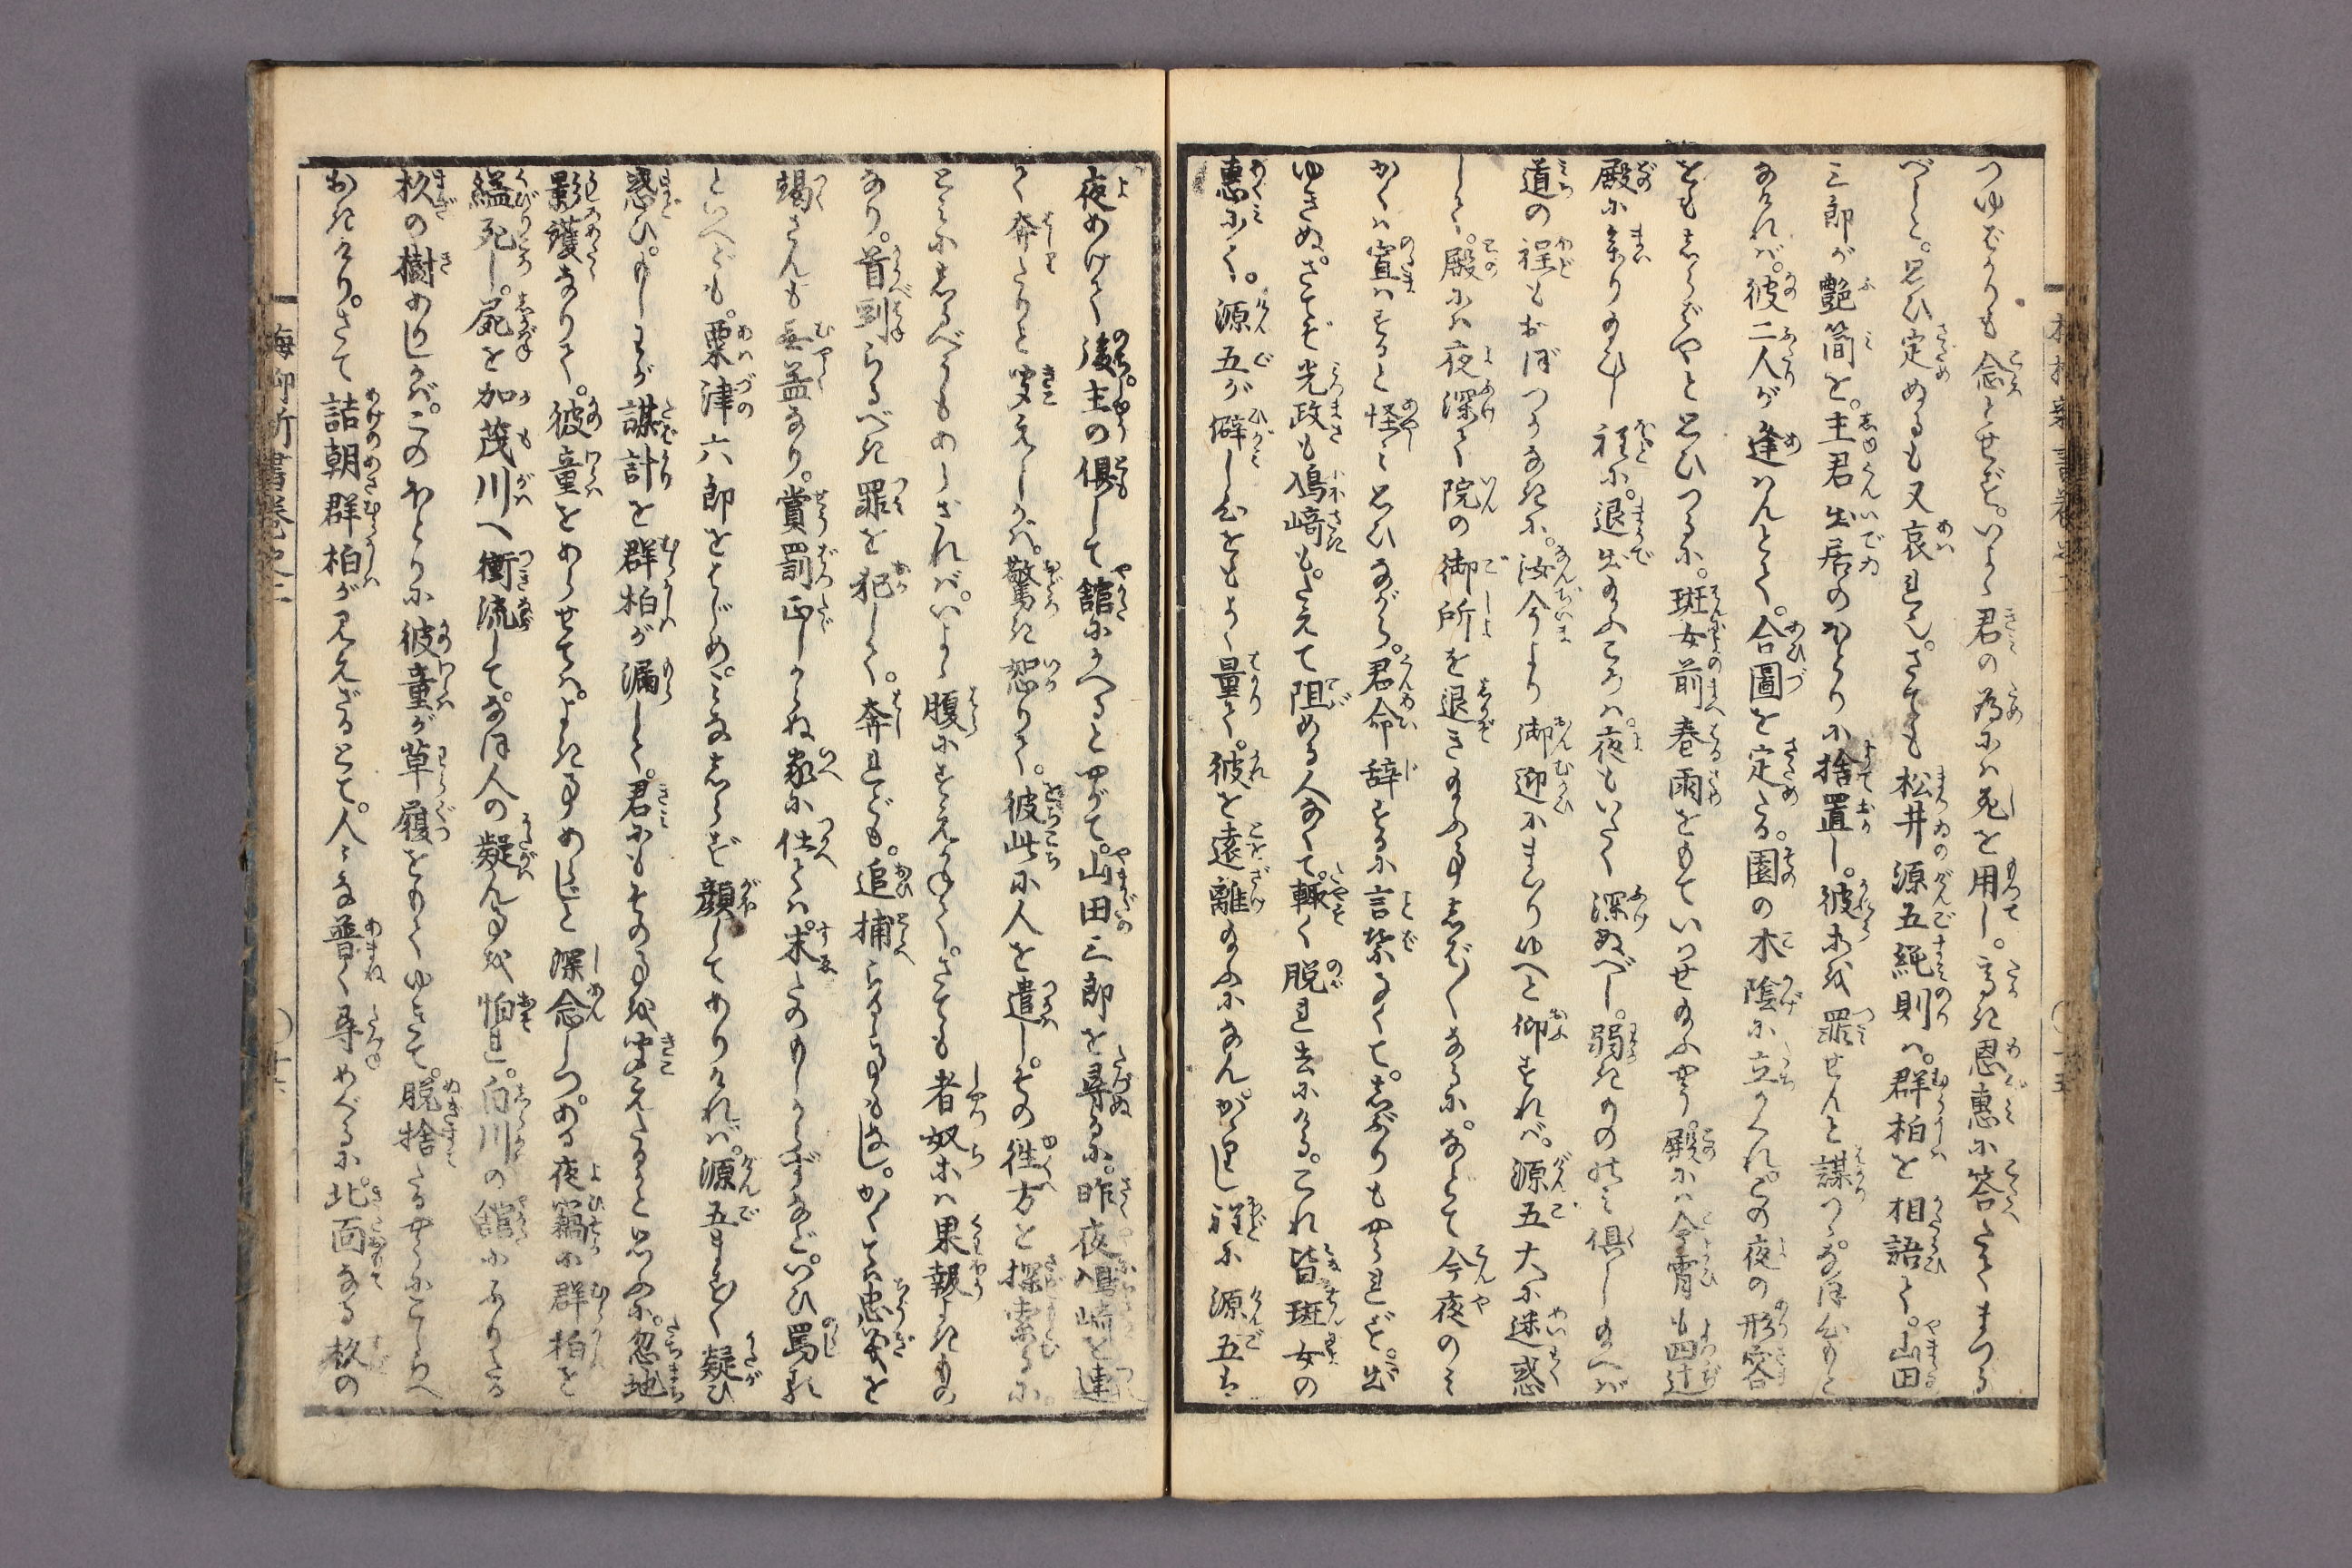 つゆばかりも念とせず。いかで君の為には死を用し。高き恩惠に答たてまつる
べしと。思ひ定めぬるも又哀れ也。さても松井源五純則は。群柏を相語て。山田
三郎が艶簡を。主君出居のほとりに捨置し。彼等を罪せんと謀りつ。なほ心もと
なければ。彼二人が逢はんとて。合圖を定たる。園の木陰に立かくれ。この夜の形容
をもしらばやと思ひつるに。斑女前春雨をもていはせ給ふやう。殿には今宵も四十辻
殿に參り給ひし程に。退出給ふころは夜もいたく深ぬべし。弱きもののみ倶し給へば
道の程もおぼつかなきに。汝今より御迎にまゐりゆへと仰すれば。源五大に迷惑
して。殿には夜深て院の御所を退き給ふ事しば〳〵なるに。などて今夜のみ
かくは宣はすると怪と思ひながら。君命辞するに言葉なくて。しぶりもやられず。出
ゆきぬ。さてぞ光政も鳰﨑も。たえて阻める人なくて。輙く脱れ去にける。これ皆斑女の
惠にて。源五が僻し心をもよく量て。彼を遠離給ふになん。かゝりし程に源五は
夜あけて後主の倶して舘にかへると山田三郎を尋るに。昨夜鳰﨑と連
て奔たりと聞えしかば。驚き怒りて。彼此に人を遣し。その徃方を探索るに。
とみにしるべうもあらざれば。いよゝ腹にすえかねて。さても者奴等は果報よきもの
なり。首刎らるべき罪を犯して。奔れども。追捕らるゝ事もなし。かくては忠義を
竭さんも無益なり。賞罰正しからぬ家に仕ては。末たのもしからずなど。いひ罵れ
といへども。粟津六郎をはじめ。みなしらず顔してありければ。源五ますます疑ひ
惑ひ。もしわが謀計を群柏が漏して。君にもその事を聞えたるかと思ふに。忽地
影護なりて。彼童をあらせては。よき事あらじと深念しつ。ある夜竊に群柏を
縊死し。屍を加茂川へ衝流して。なほ人の疑ん事を怕れ。白川の舘にふりたる
杦の樹ありしが。このほとりに彼童が草履をもてゆきて。脱捨たるやうにこしらへ
おきけり。さて詰朝群柏が見えざるとて。人みな普く尋めぐるに。北面なる杦の